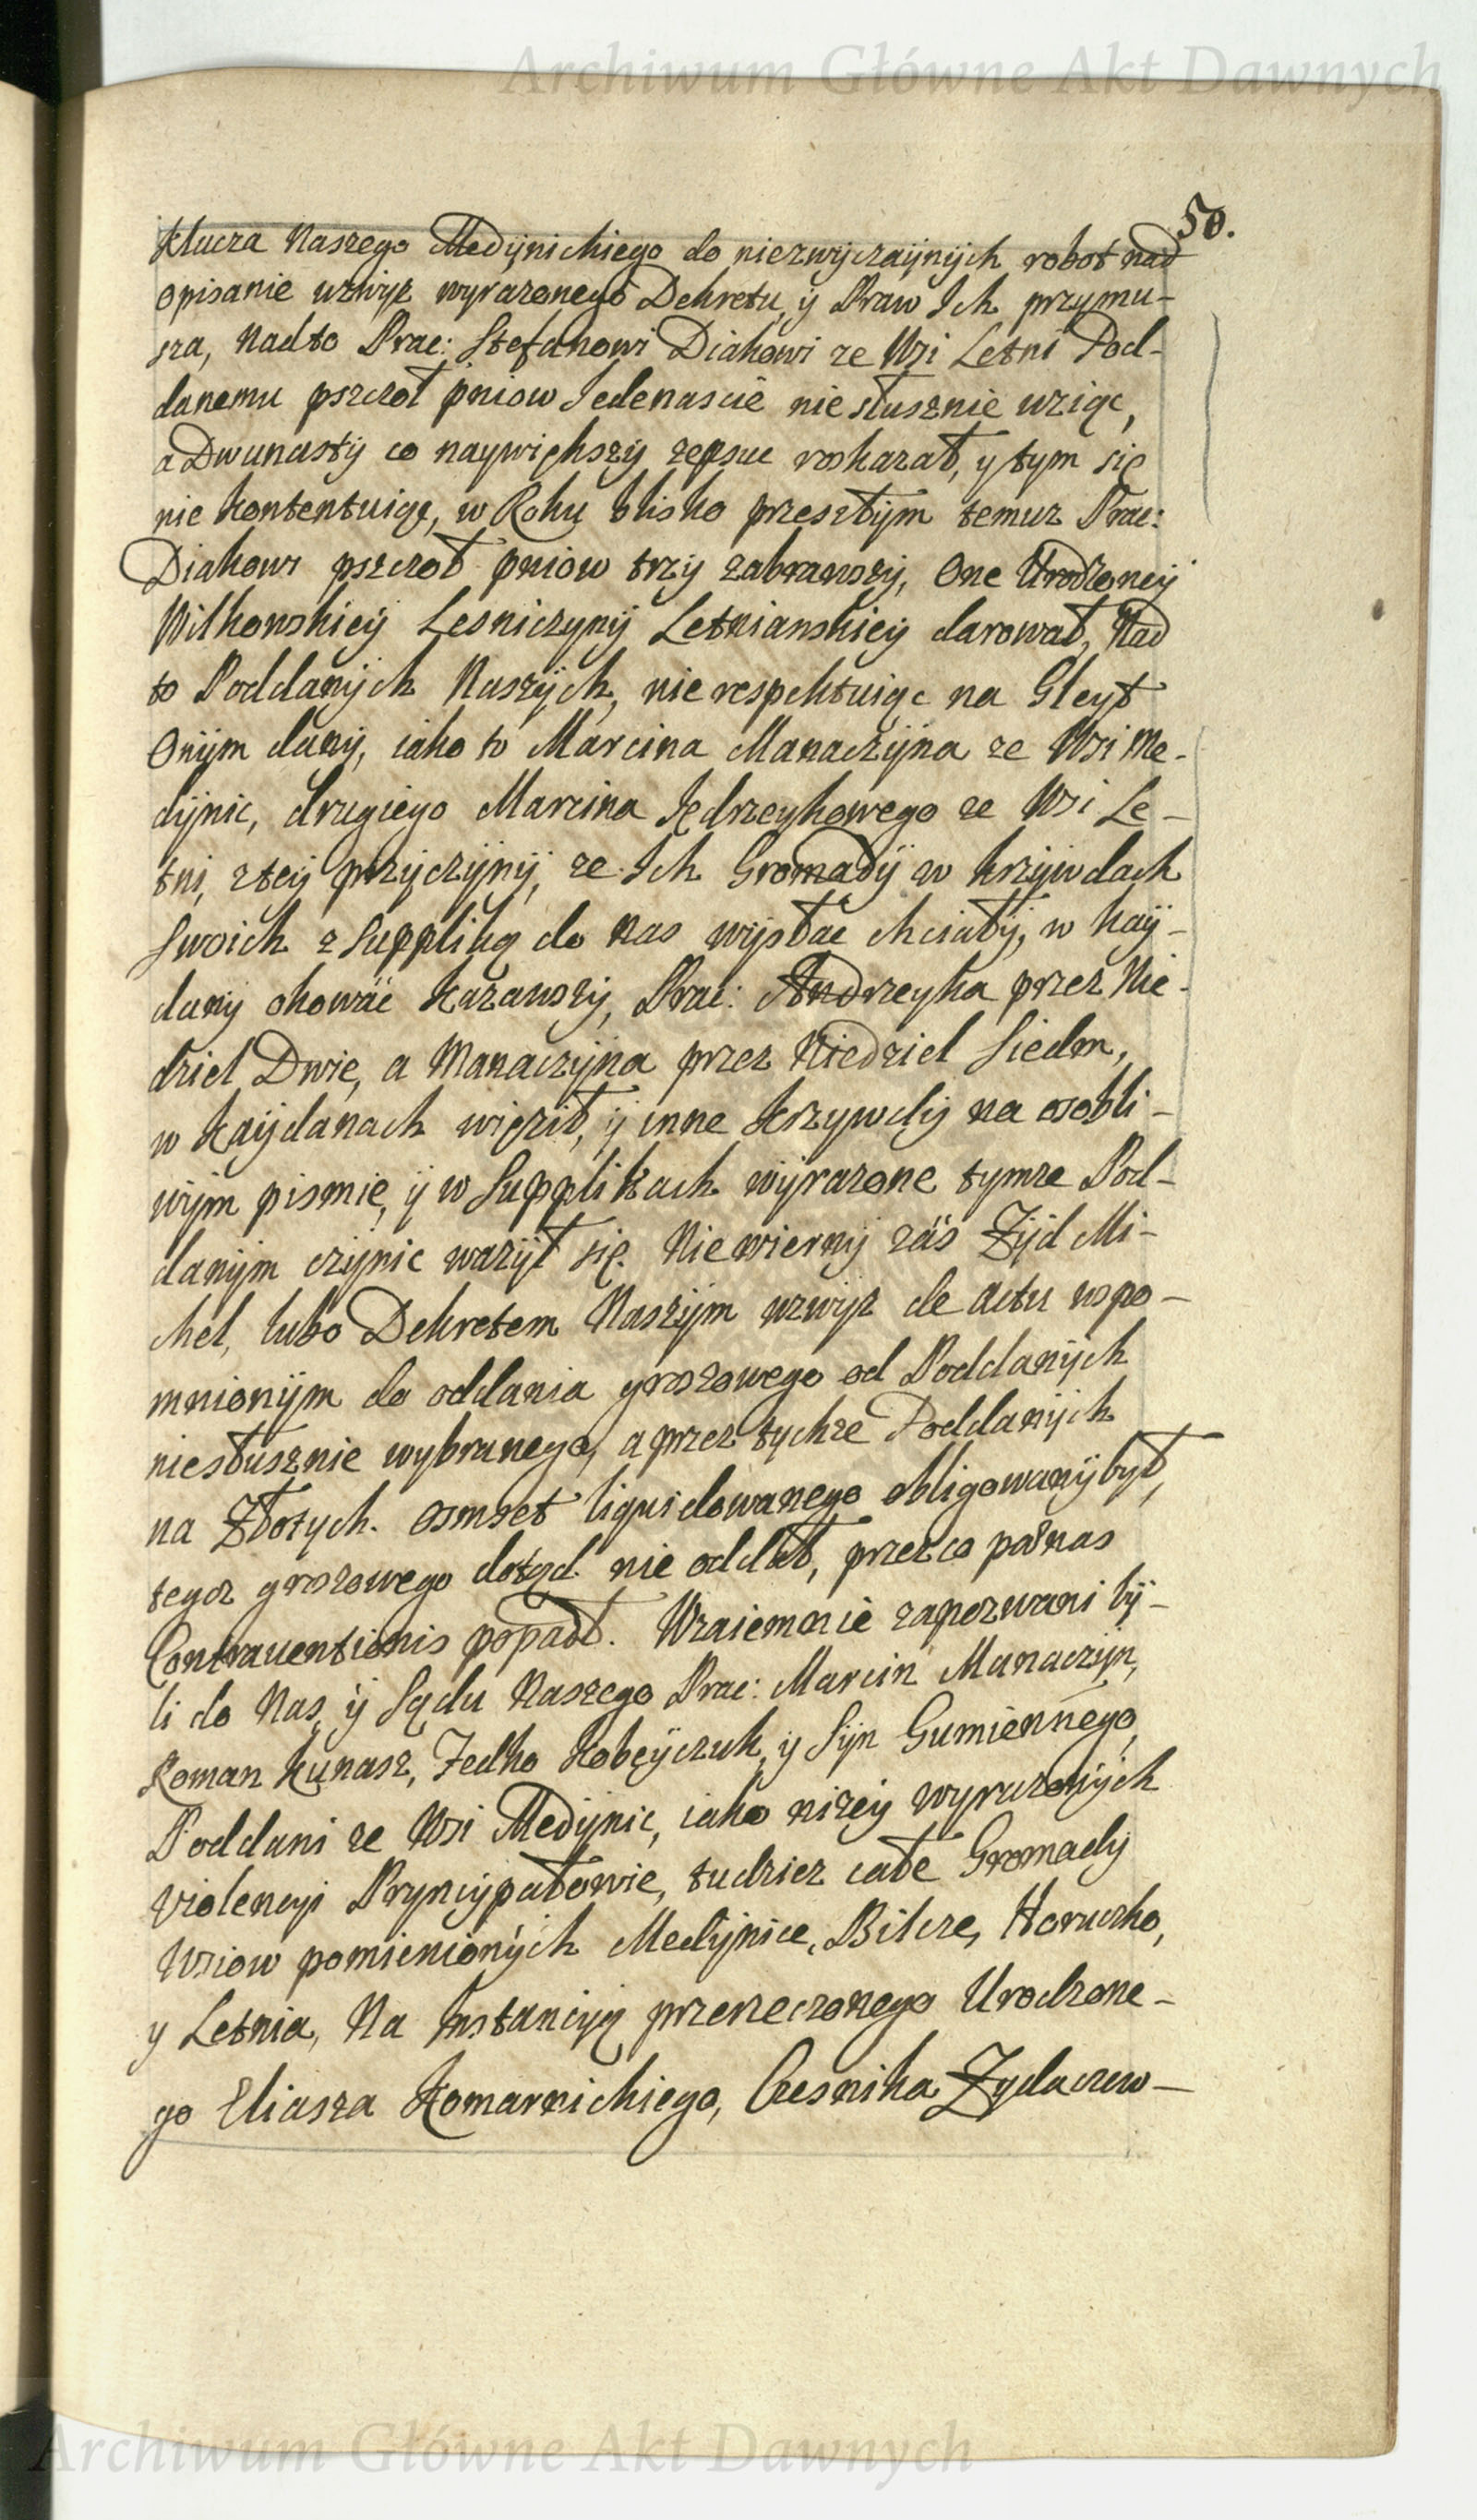 Archiwum Główne Akt Dawnych
50.
Klucza Naszego Medynickiego do niezwyczaynych robot nad
opisanie wzwyż wyrazonego Dekretu, y Praw Ich przymu-
sza, nadto Prac: Stefanowi Diakowi ze Wsi Letni Pod-
danemu pszczoł pniow Jedenascie niesłusznie wziąc,
a Dwunasty co naywiększy zepsuc roskazał, y tym się
nie kontentuiąc, w Roku blisko przeszłym temuz Prac:
Diakowi pszczoł pniow trzy zabrawszy, One Urodzoney
Wilkowskiey Lesniczyny Letnianskiey darował, Nad
to Poddanych Naszych, nie respektuiąc na Gleyt
Onym dany, iako to Marcina Manaczyna ze Wsi Me-
dynic, drugiego Marcina Jędrzeykowego ze Wsi Le-
tni, z tey przyczyny, ze Ich Gromady w krzywdach
Swoich z Suppliką do Nas wysłac chciały, w kay-
dany okowac kazawszy, Prac: Andrzeyka przez Nie-
dziel Dwie, a Manaczyna przez Niedziel Siedm,
w kaydanach więził, y inne krzywdy na osobli-
wym pismie, y w Supplikach wyrazone tymze Pod-
danym czynic wazył się. Niewierny zaś Żyd Mi-
chel, lubo Dekretem Naszym wzwyz de actu wspo-
mnionym do oddania groszowego od Poddanych
niesłusznie wybranego, a przez tychze Poddanych
na Złotych. osmset liquidowanego obligowany był,
tegoz groszowego dotąd nie oddał, przez co paenas
Contraventionis popadł. Wzaiemnie zapozwani by-
li do Nas, y Sądu Naszego Prac: Marcin Manaczyn,
Roman Kunasz, Fedko Kobeyczuk, y Syn Gumiennego,
Poddani ze Wsi Medynic, iako nizey wyrazonych
violencyi Pryncypałowie, tudziez całe Gromady
Wsiow pomienionych Medynice, Bilcze, Horucko,
y Letnia, Na Instancyą przerzeczonego Urodzone-
go Eliasza Komarnickiego, Czesnika Zydaczew-
Archiwum Główne Akt Dawnych